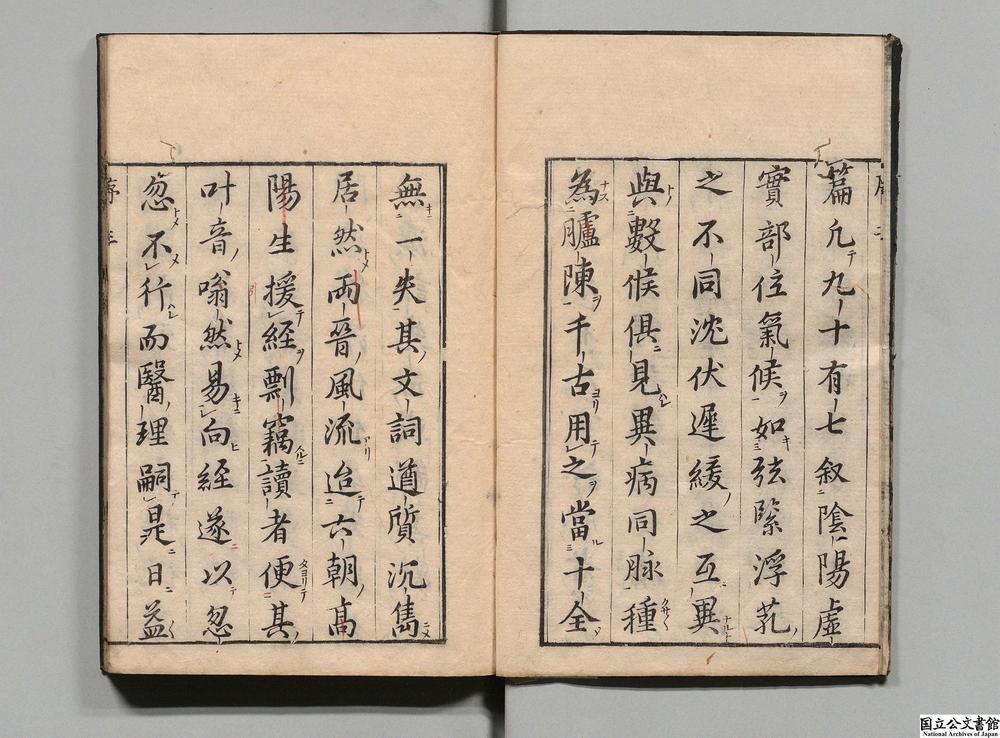 篇凡九十有七叙陰陽虛
實部位氣候如弦緊浮芤
之不同沈伏遲緩之互異
與數候俱見異病同脉種
為臚陳千古用之當十全
無一失其文詞遒質沉雋
居然兩晉風流迨六朝高
陽生援經剽竊讀者便其
叶音嗡然易向経遂以忽
忽不行而醫理嗣是日益
序 三
国立公文書館
National Archives of Japan